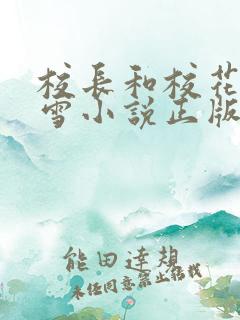 校長和校花
雪小說正版
能田達規
未经同意禁止转载